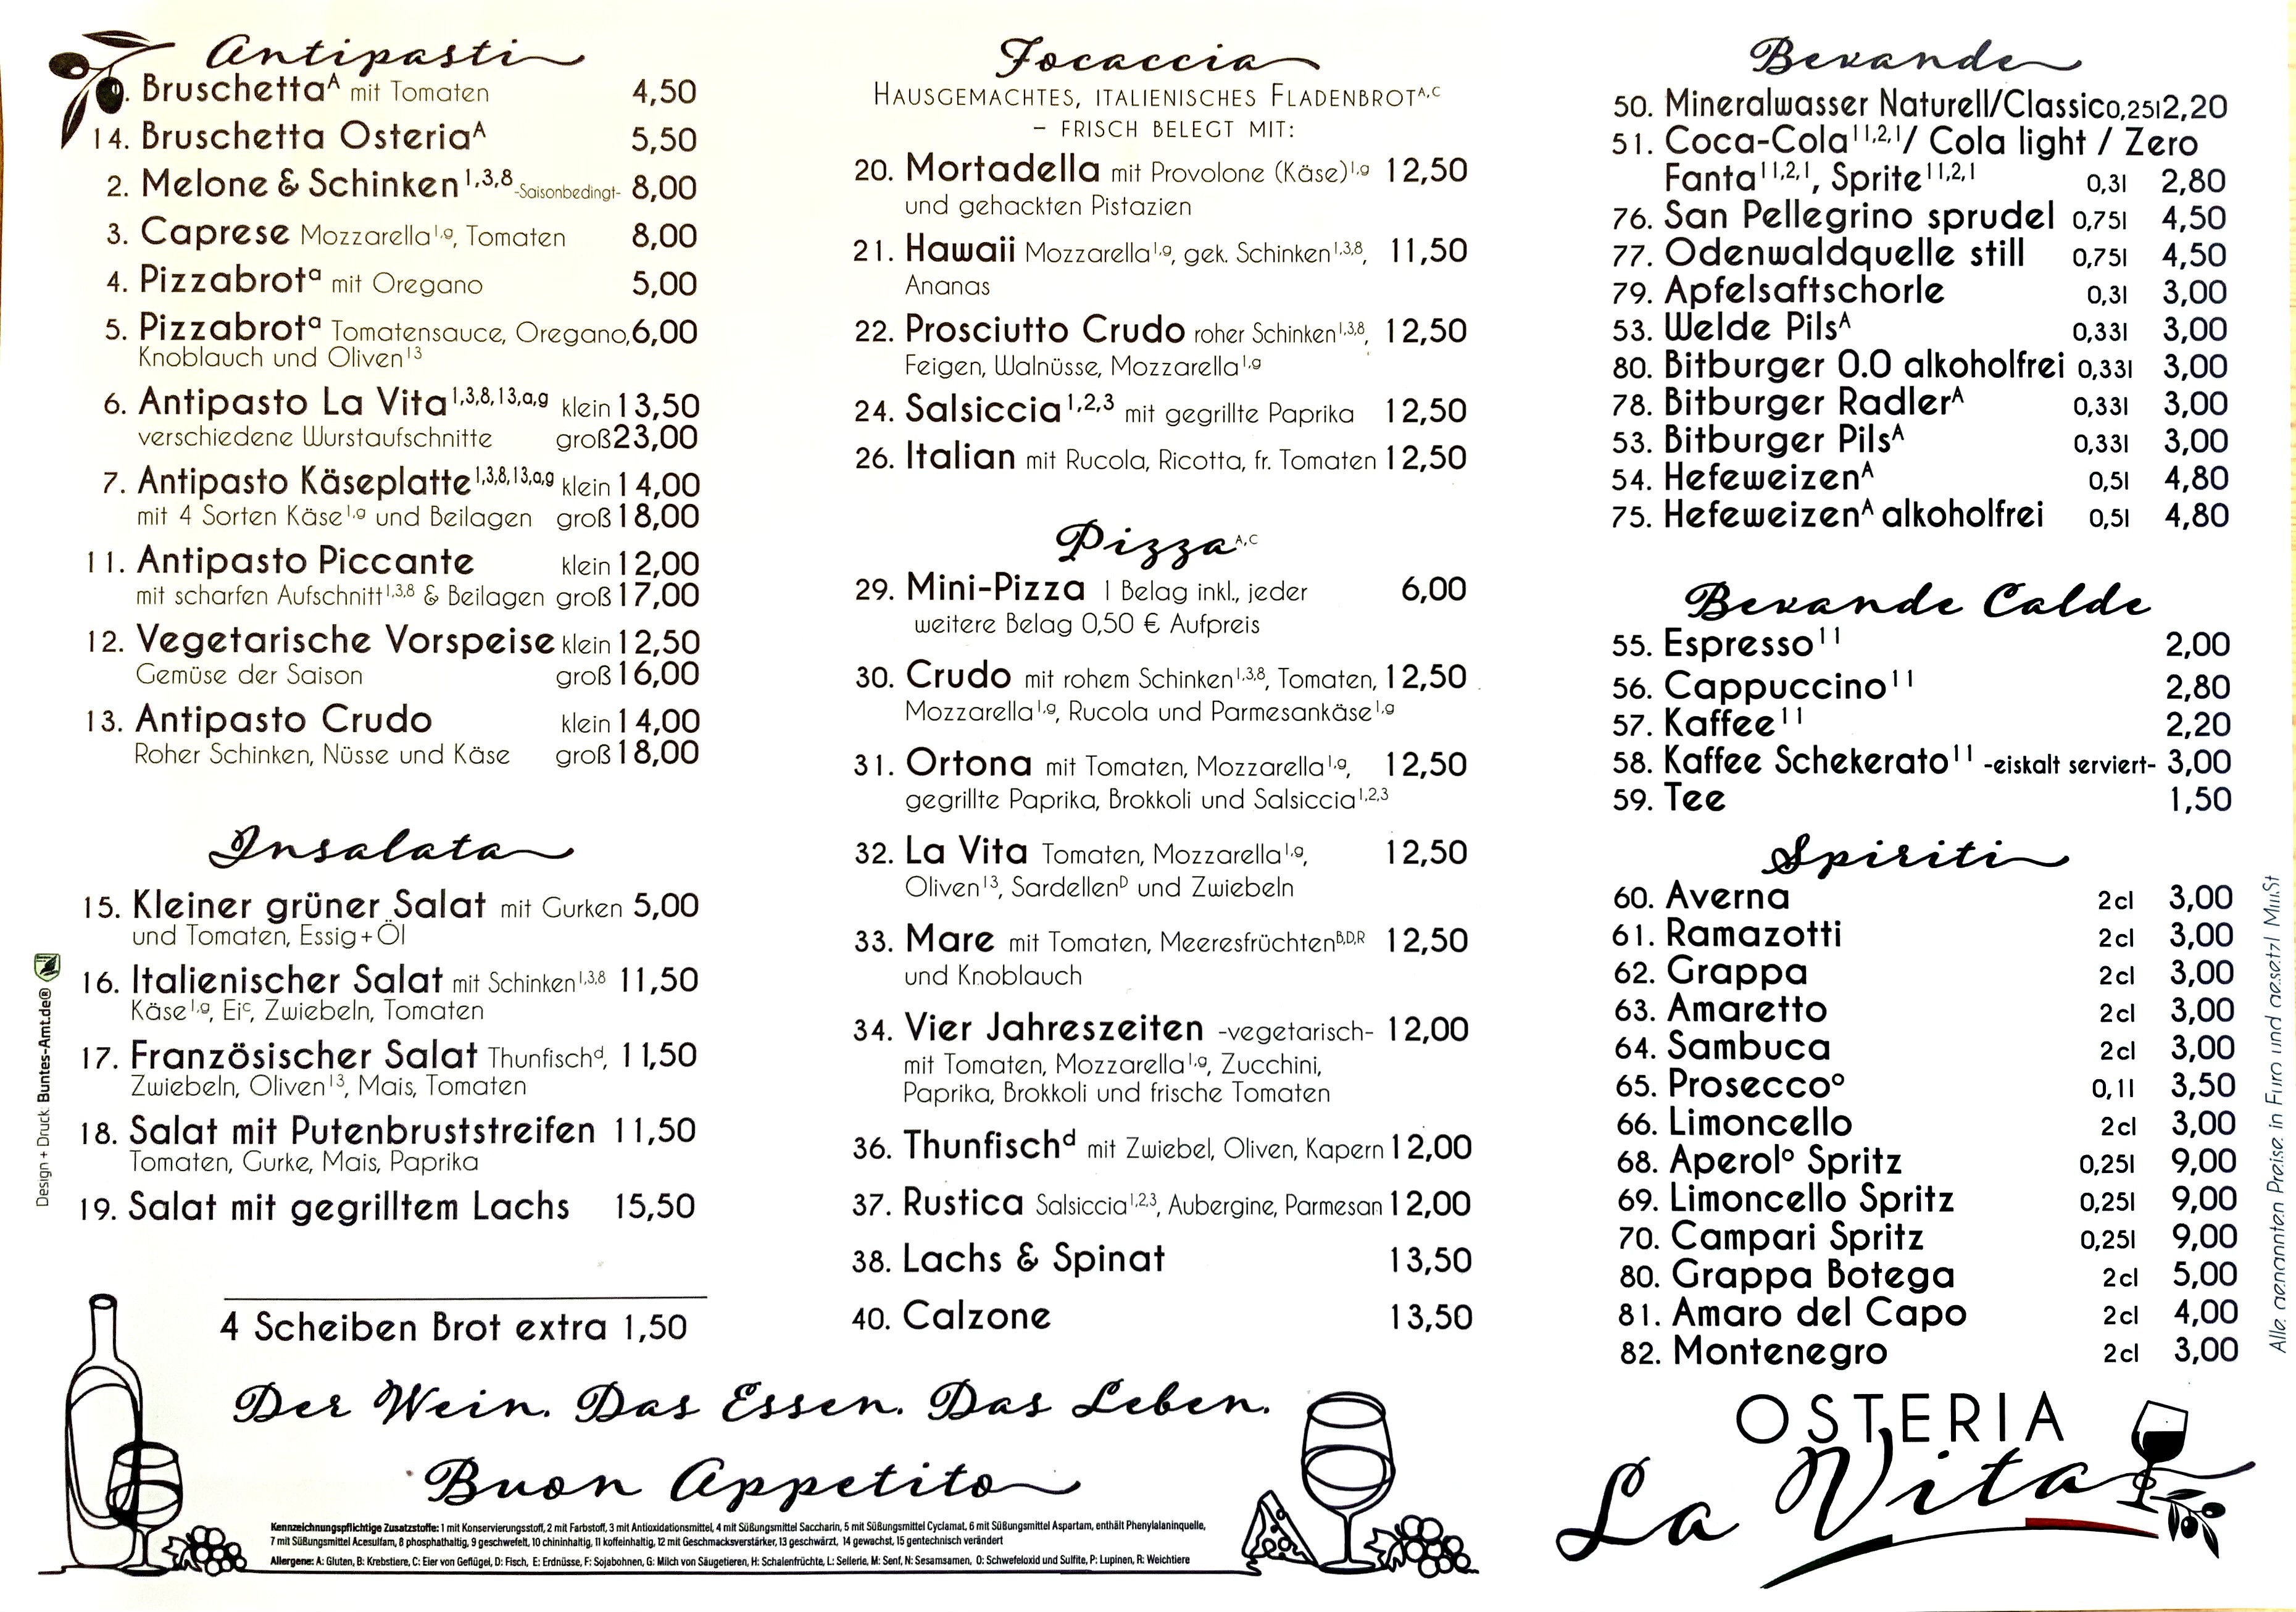 Antipasti
. Bruschetta^A mit Tomaten 4,50
14. Bruschetta Osteria^A 5,50
2. Melone & Schinken^1,3,8 -Saisonbedingt- 8,00
3. Caprese Mozzarella^1,g, Tomaten 8,00
4. Pizzabrot^a mit Oregano 5,00
5. Pizzabrot^a Tomatensauce, Oregano, 6,00
Knoblauch und Oliven^13
6. Antipasto La Vita^1,3,8,13,a,g klein 13,50
verschiedene Wurstaufschnitte groß 23,00
7. Antipasto Käseplatte^1,3,8,13,a,g klein 14,00
mit 4 Sorten Käse^1,g und Beilagen groß 18,00
11. Antipasto Piccante klein 12,00
mit scharfen Aufschnitt^1,3,8 & Beilagen groß 17,00
12. Vegetarische Vorspeise klein 12,50
Gemüse der Saison groß 16,00
13. Antipasto Crudo klein 14,00
Roher Schinken, Nüsse und Käse groß 18,00
Insalata
15. Kleiner grüner Salat mit Gurken 5,00
und Tomaten, Essig+Öl
16. Italienischer Salat mit Schinken^1,3,8 11,50
Käse^1,g, Ei^c, Zwiebeln, Tomaten
17. Französischer Salat Thunfisch^d, 11,50
Zwiebeln, Oliven^13, Mais, Tomaten
18. Salat mit Putenbruststreifen 11,50
Tomaten, Gurke, Mais, Paprika
19. Salat mit gegrilltem Lachs 15,50
4 Scheiben Brot extra 1,50
Design + Druck: Buntes-Amt.de®
Focaccia
Hausgemachtes, italienisches Fladenbrot^A,C
– frisch belegt mit:
20. Mortadella mit Provolone (Käse)^1,g 12,50
und gehackten Pistazien
21. Hawaii Mozzarella^1,g, gek. Schinken^1,3,8, 11,50
Ananas
22. Prosciutto Crudo roher Schinken^1,3,8, 12,50
Feigen, Walnüsse, Mozzarella^1,g
24. Salsiccia^1,2,3 mit gegrillte Paprika 12,50
26. Italian mit Rucola, Ricotta, fr. Tomaten 12,50
Pizza^A,C
29. Mini-Pizza 1 Belag inkl., jeder 6,00
weitere Belag 0,50 € Aufpreis
30. Crudo mit rohem Schinken^1,3,8, Tomaten, 12,50
Mozzarella^1,g, Rucola und Parmesankäse^1,g
31. Ortona mit Tomaten, Mozzarella^1,g, 12,50
gegrillte Paprika, Brokkoli und Salsiccia^1,2,3
32. La Vita Tomaten, Mozzarella^1,g, 12,50
Oliven^13, Sardellen^D und Zwiebeln
33. Mare mit Tomaten, Meeresfrüchten^B,D,R 12,50
und Knoblauch
34. Vier Jahreszeiten -vegetarisch- 12,00
mit Tomaten, Mozzarella^1,g, Zucchini,
Paprika, Brokkoli und frische Tomaten
36. Thunfisch^d mit Zwiebel, Oliven, Kapern 12,00
37. Rustica Salsiccia^1,2,3, Aubergine, Parmesan 12,00
38. Lachs & Spinat 13,50
40. Calzone 13,50
Der Wein. Das Essen. Das Leben.
Buon Appetito
Kennzeichnungspflichtige Zusatzstoffe: 1 mit Konservierungsstoff, 2 mit Farbstoff, 3 mit Antioxidationsmittel, 4 mit Süßungsmittel Saccharin, 5 mit Süßungsmittel Cyclamat, 6 mit Süßungsmittel Aspartam, enthält Phenylalaninquelle,
7 mit Süßungsmittel Acesulfam, 8 phosphathaltig, 9 geschwefelt, 10 chininhaltig, 11 koffeinhaltig, 12 mit Geschmacksverstärker, 13 geschwärzt, 14 gewachst, 15 gentechnisch verändert
Allergene: A: Gluten, B: Krebstiere, C: Eier von Geflügel, D: Fisch, E: Erdnüsse, F: Sojabohnen, G: Milch von Säugetieren, H: Schalenfrüchte, L: Sellerie, M: Senf, N: Sesamsamen, O: Schwefeloxid und Sulfite, P: Lupinen, R: Weichtiere
Bevande
50. Mineralwasser Naturell/Classic 0,25l 2,20
51. Coca-Cola^11,2,1/ Cola light / Zero
Fanta^11,2,1, Sprite^11,2,1 0,3l 2,80
76. San Pellegrino sprudel 0,75l 4,50
77. Odenwaldquelle still 0,75l 4,50
79. Apfelsaftschorle 0,3l 3,00
53. Welde Pils^A 0,33l 3,00
80. Bitburger 0.0 alkoholfrei 0,33l 3,00
78. Bitburger Radler^A 0,33l 3,00
53. Bitburger Pils^A 0,33l 3,00
54. Hefeweizen^A 0,5l 4,80
75. Hefeweizen^A alkoholfrei 0,5l 4,80
Bevande Calde
55. Espresso^11 2,00
56. Cappuccino^11 2,80
57. Kaffee^11 2,20
58. Kaffee Schekerato^11 -eiskalt serviert- 3,00
59. Tee 1,50
Spiriti
60. Averna 2cl 3,00
61. Ramazotti 2cl 3,00
62. Grappa 2cl 3,00
63. Amaretto 2cl 3,00
64. Sambuca 2cl 3,00
65. Prosecco^o 0,1l 3,50
66. Limoncello 2cl 3,00
68. Aperol^o Spritz 0,25l 9,00
69. Limoncello Spritz 0,25l 9,00
70. Campari Spritz 0,25l 9,00
80. Grappa Botega 2cl 5,00
81. Amaro del Capo 2cl 4,00
82. Montenegro 2cl 3,00
Alle genannten Preise in Euro und gesetzl MwSt
OSTERIA
La Vita